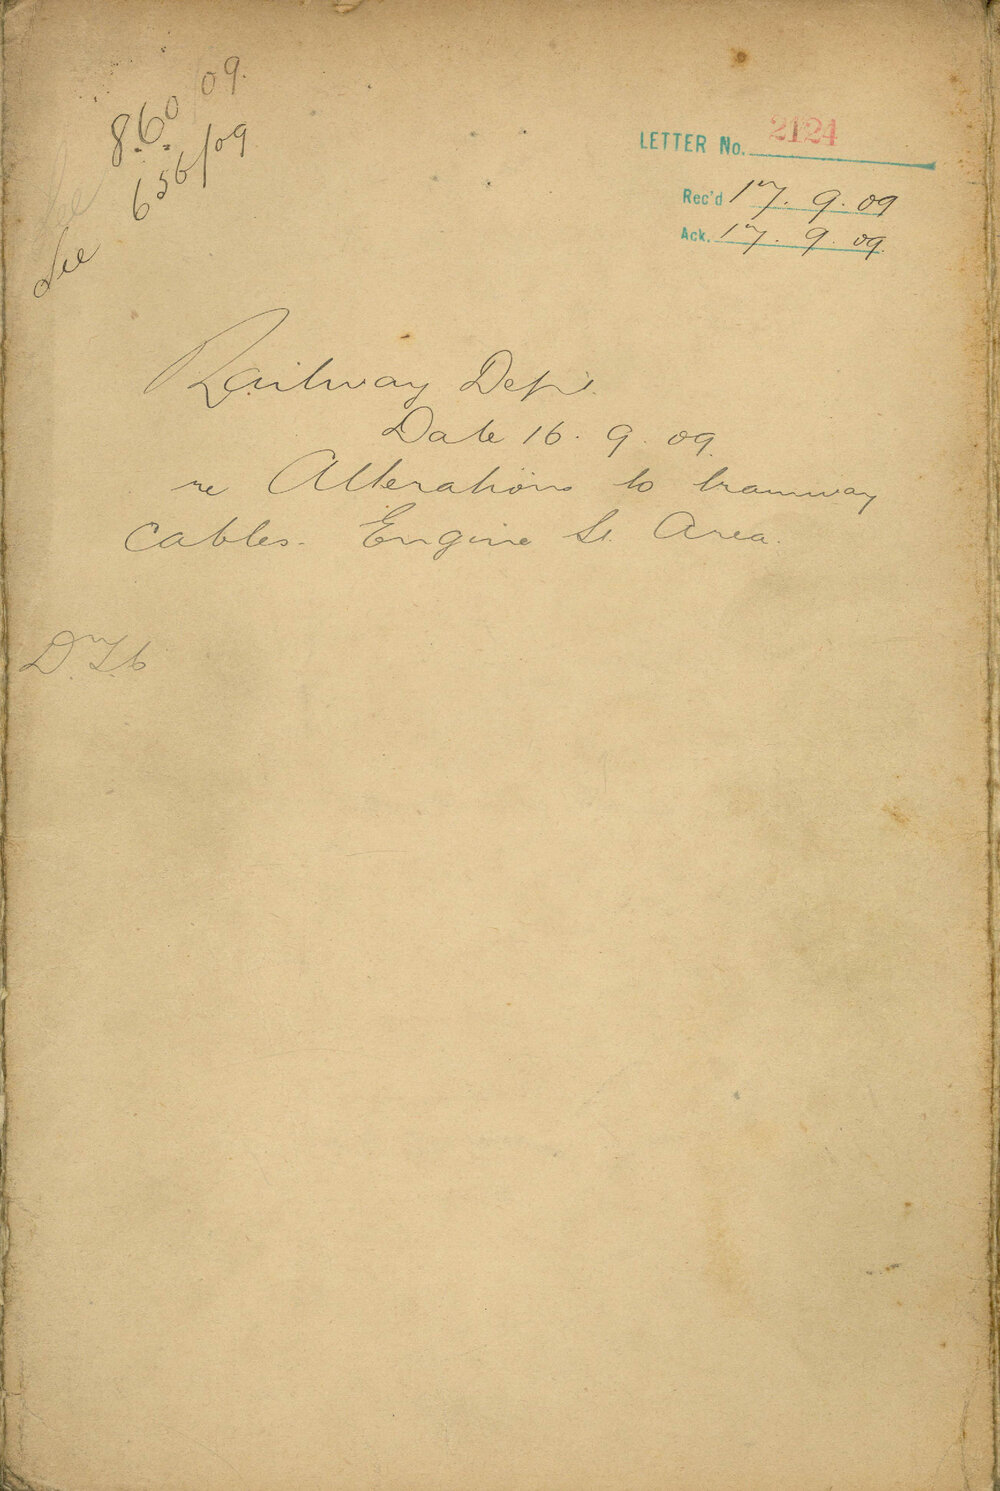 See 860/09.
See 656/09
LETTER No. 2124
Rec'd 17. 9. 09
Ack. 17. 9. 09.
Railway Dept.
Date 16. 9. 09.
re Alterations to tramway
cables. Engine St. Area.